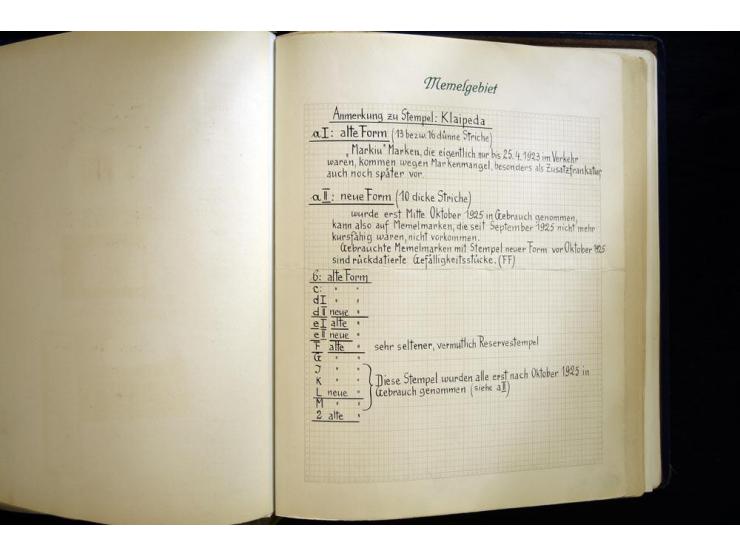 Memelgebiet
Anmerkung zu Stempel: Klaipeda
aI: alte Form (13 bezw. 16 dünne Striche)
„Markiu" Marken, die eigentlich nur bis 25.4.1923 im Verkehr
waren, kommen wegen Markenmangel, besonders als Zusatzfrankatur
auch noch später vor.
aII: neue Form (10 dicke Striche)
wurde erst Mitte Oktober 1925 in Gebrauch genommen,
kann also auf Memelmarken, die seit September 1925 nicht mehr
kursfähig waren, nicht vorkommen.
Gebrauchte Memelmarken mit Stempel neuer Form vor Oktober 1925
sind rückdatierte Gefälligkeitsstücke. (FF)
b: alte Form
c: " "
dI " "
dII neue "
eI alte "
eII neue "
F alte " sehr seltener, vermutlich Reservestempel
G " "
J " "
K " " Diese Stempel wurden alle erst nach Oktober 1925 in
L neue " Gebrauch genommen (siehe aII)
M " "
2 alte "